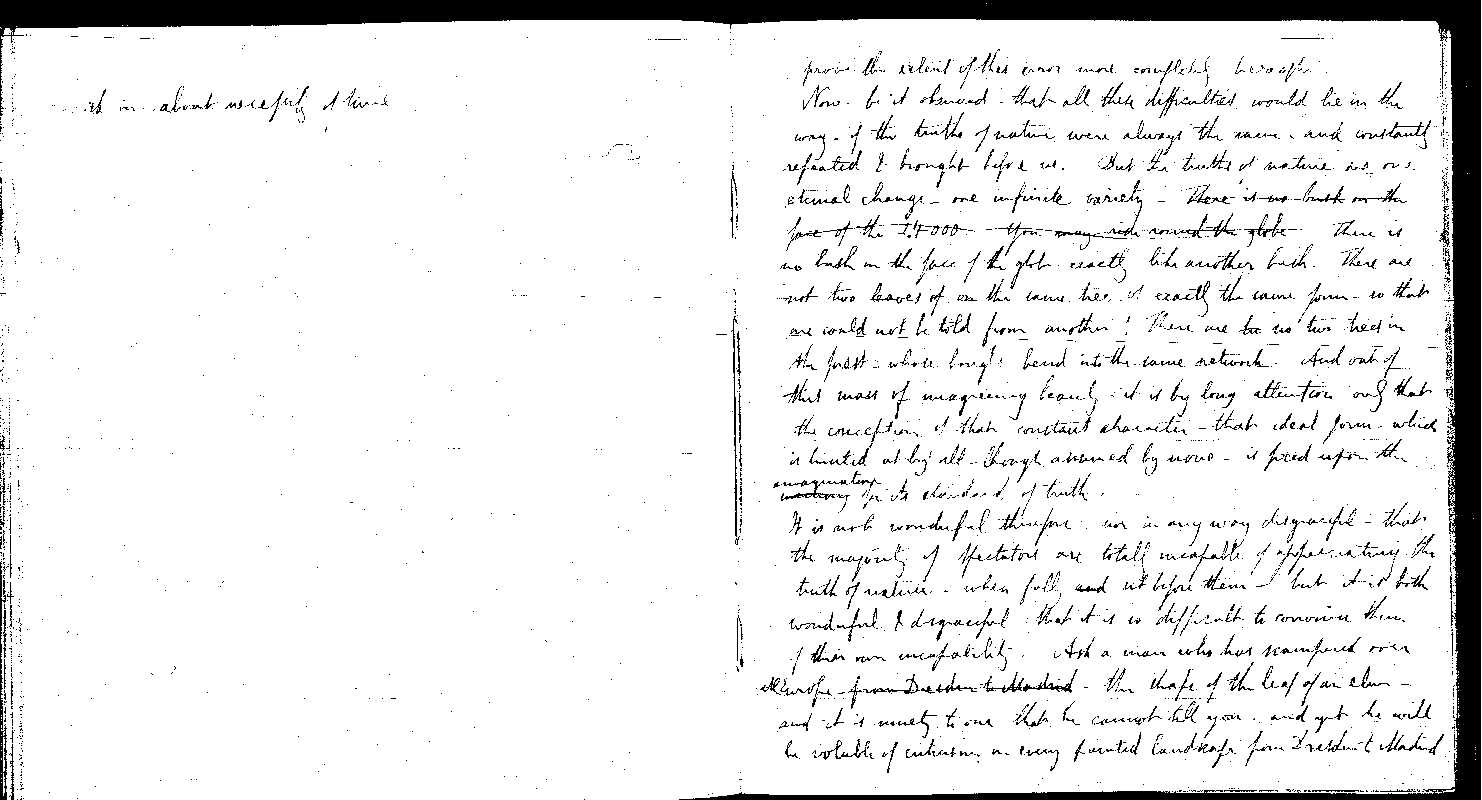 it in about necessity of time
prove the extent of this error more completely hereafter.
Now - be it observed - that all these difficulties would lie in the
way - if the truths of nature were always the same - and constantly
repeated & brought before us. But the truths of nature are one
eternal change - one infinite variety - There is no bush on the
face of the You may ride round the globe There is
no bush on the face of the globe exactly like another bush. There are
not two leaves of on the same tree of exactly the same form - so that
one could not be told from another! There are no two trees in
the forest - whose boughs bend into the same network. And out of
this mass of unagreeing beauty - it is by long attention only that
the conception of that constant character - that ideal form - which
is hinted at by all - though assumed by none - is fixed upon the
imagination
for its standard of truth.
It is not wonderful therefore - nor in any way disgraceful - that
the majority of spectators are totally incapable of appreciating the
truth of nature - when fully and set before them - but it is both
wonderful & disgraceful that it is so difficult to convince them
of their own incapability. Ask a man who has scampered over
all Europe - from Dresden to Madrid - the shape of the leaf of an elm -
and it is ninety to one that he cannot tell you - and yet he will
be voluble of criticism on every painted landscape from Dresden to Madrid